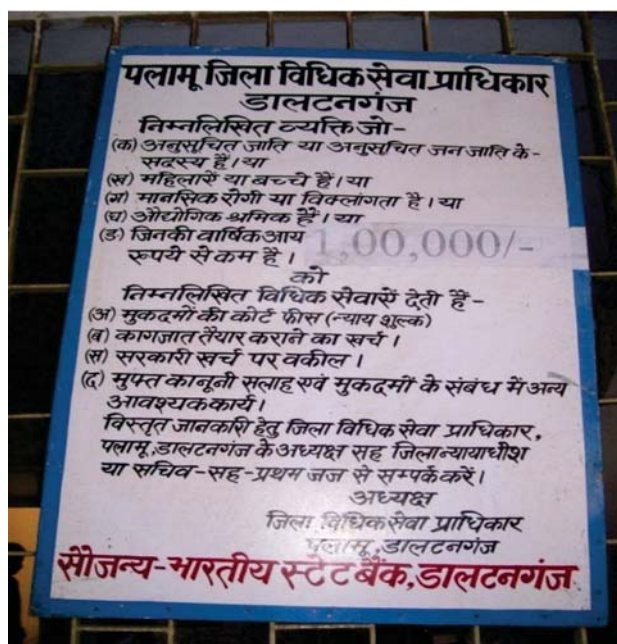 पलामू जिला विधिक सेवा प्राधिकार
डालटनगंज
निम्नलिखित व्यक्ति जो-
(क) अनुसूचित जाति या अनुसूचित जन जाति के-
सदस्य हैं। या
(ख) महिलाऐं या बच्चे हैं। या
(ग) मानसिक रोगी या विक्लांगता है। या
(घ) औद्योगिक श्रमिक हैं। या
(ङ) जिनकी वार्षिक आय 1,00,000/-
रूपये से कम है।
को
निम्नलिखित विधिक सेवाऐं देती हैं-
(अ) मुकदमों की कोर्ट फीस (न्याय शुल्क)
(ब) कागजात तैयार कराने का खर्च।
(स) सरकारी खर्च पर वकील।
(द) मुफ्त कानूनी सलाह एवं मुकदमों के संबंध में अन्य
आवश्यक कार्य।
विस्तृत जानकारि हेतु जिला विधिक सेवा प्राधिकार,
पलामू, डालटनगंज के अध्यक्ष सह जिला न्यायाधीश
या सचिव-सह-प्रथम जज से सम्पर्क करें।
अध्यक्ष
जिला विधिक सेवा प्राधिकार
पलामू, डालटनगंज
सौजन्य-भारतीय स्टेट बैंक, डालटनगंज